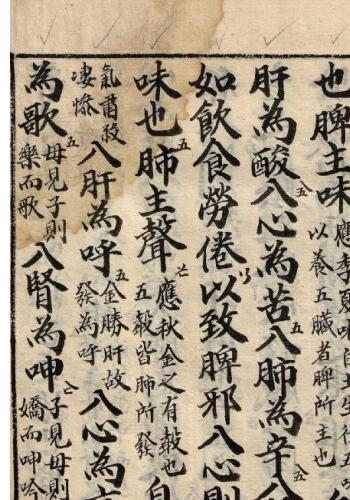 也脾主味應季夏味自土生
以養五臓者脾所主也
肝為酸入心為苦入肺為辛入
如飲食勞倦以致脾邪入心則
味也肺主聲應秋金之有聲也
五聲皆肺所發
自
氣肅殺
凄慘
入肝為呼金勝肝故
發為呼
入心為
為歌母見子則
樂而歌
入腎為呻子見母則
嬌而呻吟